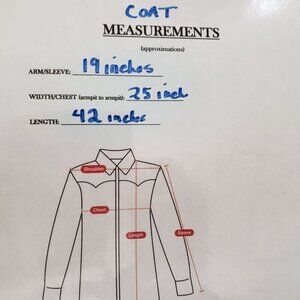 COAT
MEASUREMENTS
(approximations)
ARM/SLEEVE: 19 inches
WIDTH/CHEST (armpit to armpit): 25 inch
LENGTH: 42 inches
Shoulder
Chest
Length
Sleeve